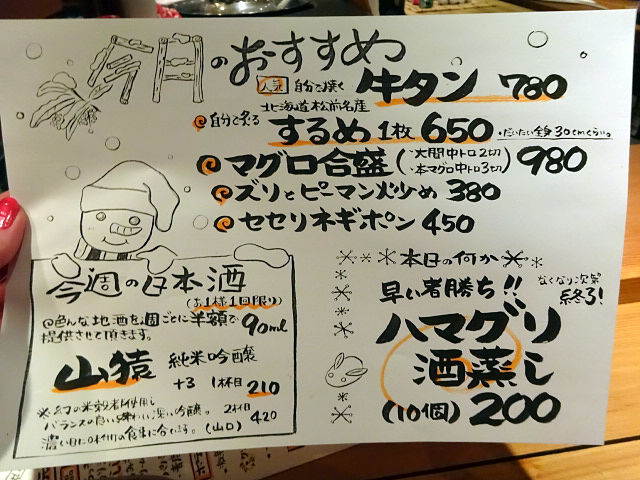 今月のおすすめ
人気 自分で焼く 牛タン 780
北海道松前名産
自分で炙る するめ 1枚 650 ・だいたい全長30cmくらい。
マグロ合盛 (・大間中トロ2切 ・本マグロ中トロ3切) 980
ズリとピーマン炒め 380
セセリネギポン 450
今週の日本酒
(お1様1回限り)
色んな地酒を週ごとに半額で 90ml
提供させて頂きます。
山猿 純米吟醸
+3 1杯目 210
2杯目 420
バランスの良い味わい深い吟醸。
(山口)
本日の何か
早い者勝ち!! なくなり次第 終了!
ハマグリ
酒蒸し
(10個) 200